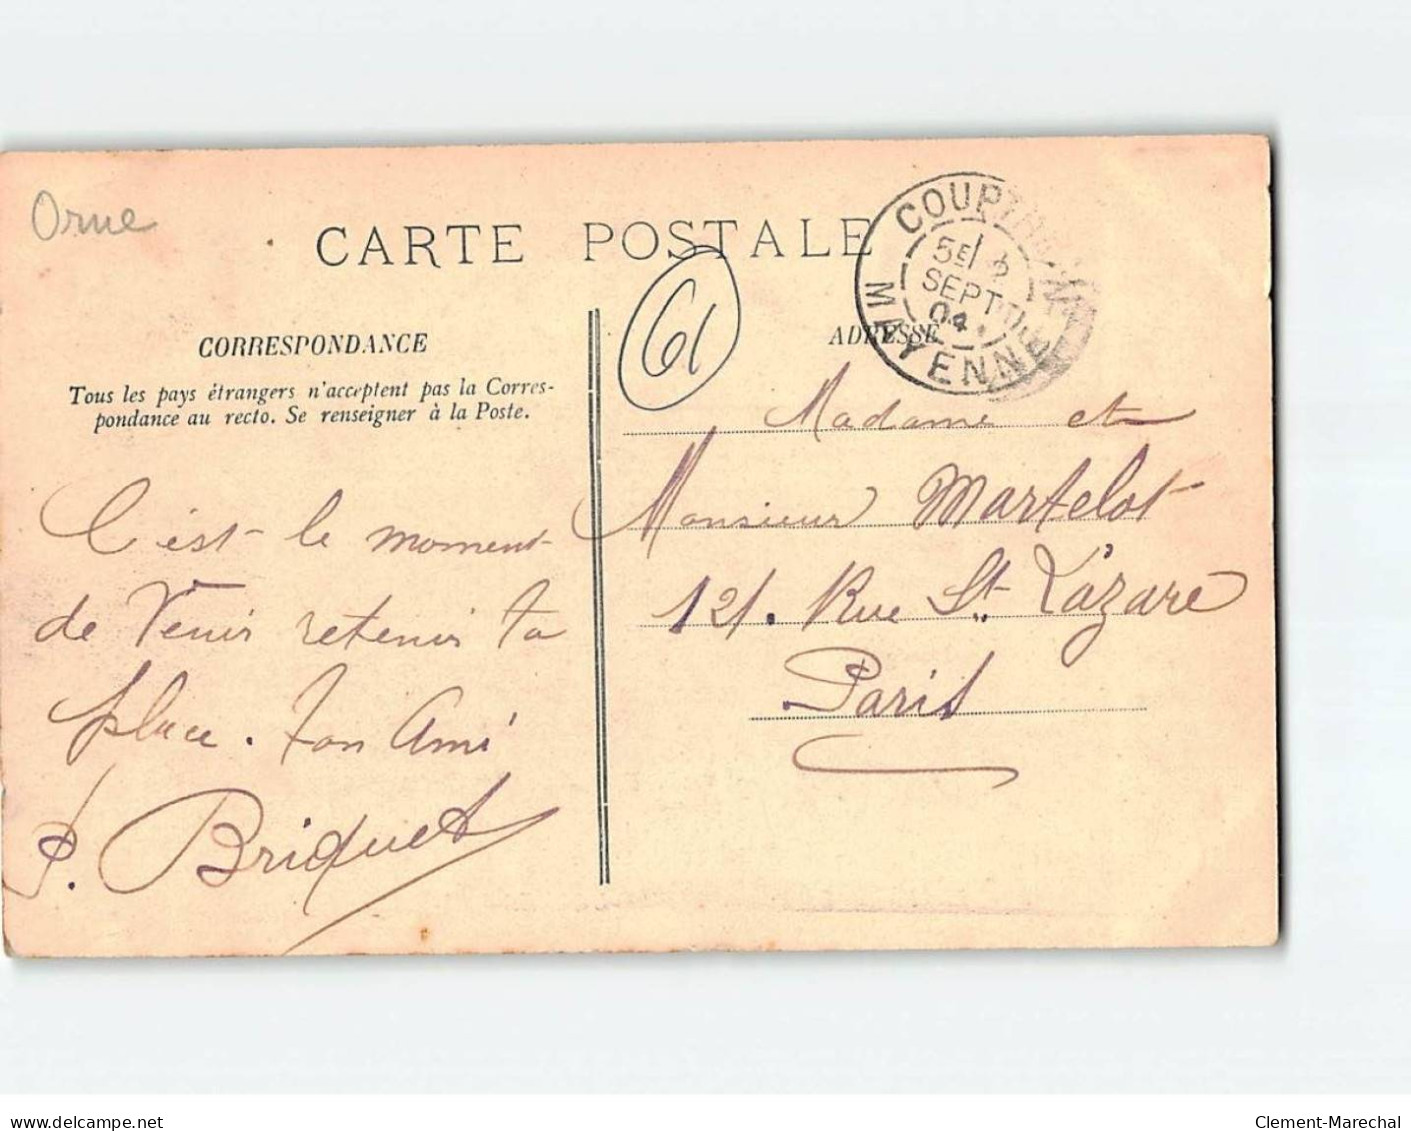 Orne
CARTE POSTALE
61
COUPTRAIN
SEPT
04
MAYENNE
CORRESPONDANCE
Tous les pays étrangers n'acceptent pas la Corres-
pondance au recto. Se renseigner à la Poste.
C'est le moment
de Venir retenir ta
place. Ton Ami
P. Briquet
ADRESSE
Madame et
Monsieur Martelot
121. Rue St Lazare
Paris
www.delcampe.net
Clement-Marechal